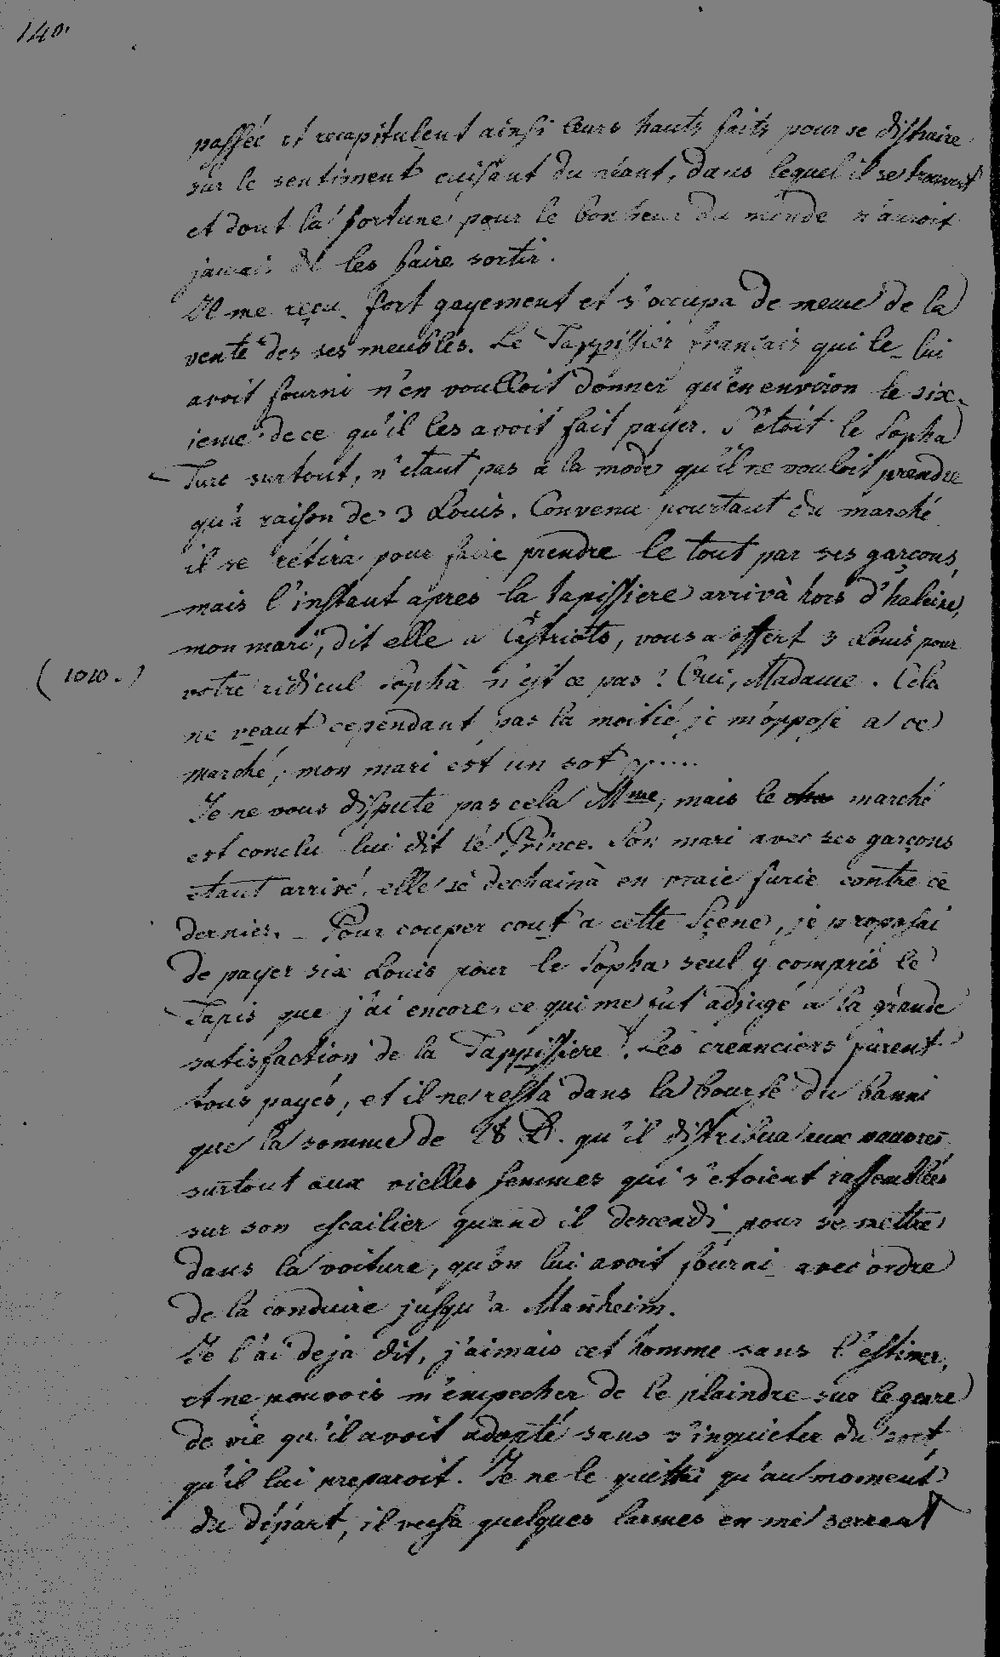 140.
passée et recapitulent ainsi leurs hauts faits pour se distraire
sur le sentiment cuisant du néant, dans lequel il se trouvent
et dont la fortune pour le bonheur du monde n'auroit
jamais dû les faire sortir.
Il me reçu fort gayement et s'occupa de meme de la
vente des ses meubles. Le Tappissier français qui le lui
avoit fourni n'en voulloit donner qu'en environ le six-
ieme de ce qu'il les avoit fait payer. S'étoit le Sopha
Turc surtout, n'étant pas a la mode qu'il ne vouloit prendre
qu'à raison de 3 Louis. Convenu pourtant du marché
il se rétira pour faire prendre le tout par ses garçons,
mais l'instant apres la tapissiere arrivà hors d'haleine,
mon mari, dit elle a , vous a offert 3 Louis pour
(1010.) votre ridicul Sopha n'est ce pas? Oui, Madame. Cela
ne veaut cependant pas la moitié je m'oppose a ce
marché; mon mari est un sot .....
Je ne vous dispute pas cela Mme, mais le marché
est conclu lui dit le Prince. Son mari avec ses garçons
étant arrivé, elle se dechainà en vraie furie contre ce
dernier. - Pour couper cout a cette Scene, je proposai
de payer six Louis pour le Sopha seul y compris le
Tapis que j'ai encore, ce qui me fut adjugé a la grande
satisfaction de la Tappissiere. Les creanciers furent
tous payés, et il ne resta dans la bourse du banni
que la somme de 28 qu'il distribua aux pauvres
surtout aux vielles femmes qui s'etoient rassemblées
sur son escailier quand il descendi pour se mettre
dans la voiture, qu'on lui avoit fourni avec ordre
de la conduire jusqu'a Manheim.
Je l'ai deja dit, j'aimais cet homme sans l'estimer,
et ne pouvois m'empecher de le plaindre sur le genre
de vie qu'il avoit adopté sans s'inquieter du sort
qu'il lui preparoit. Je ne le quittai qu'au moment
du départ, il versa quelques larmes en me serrant